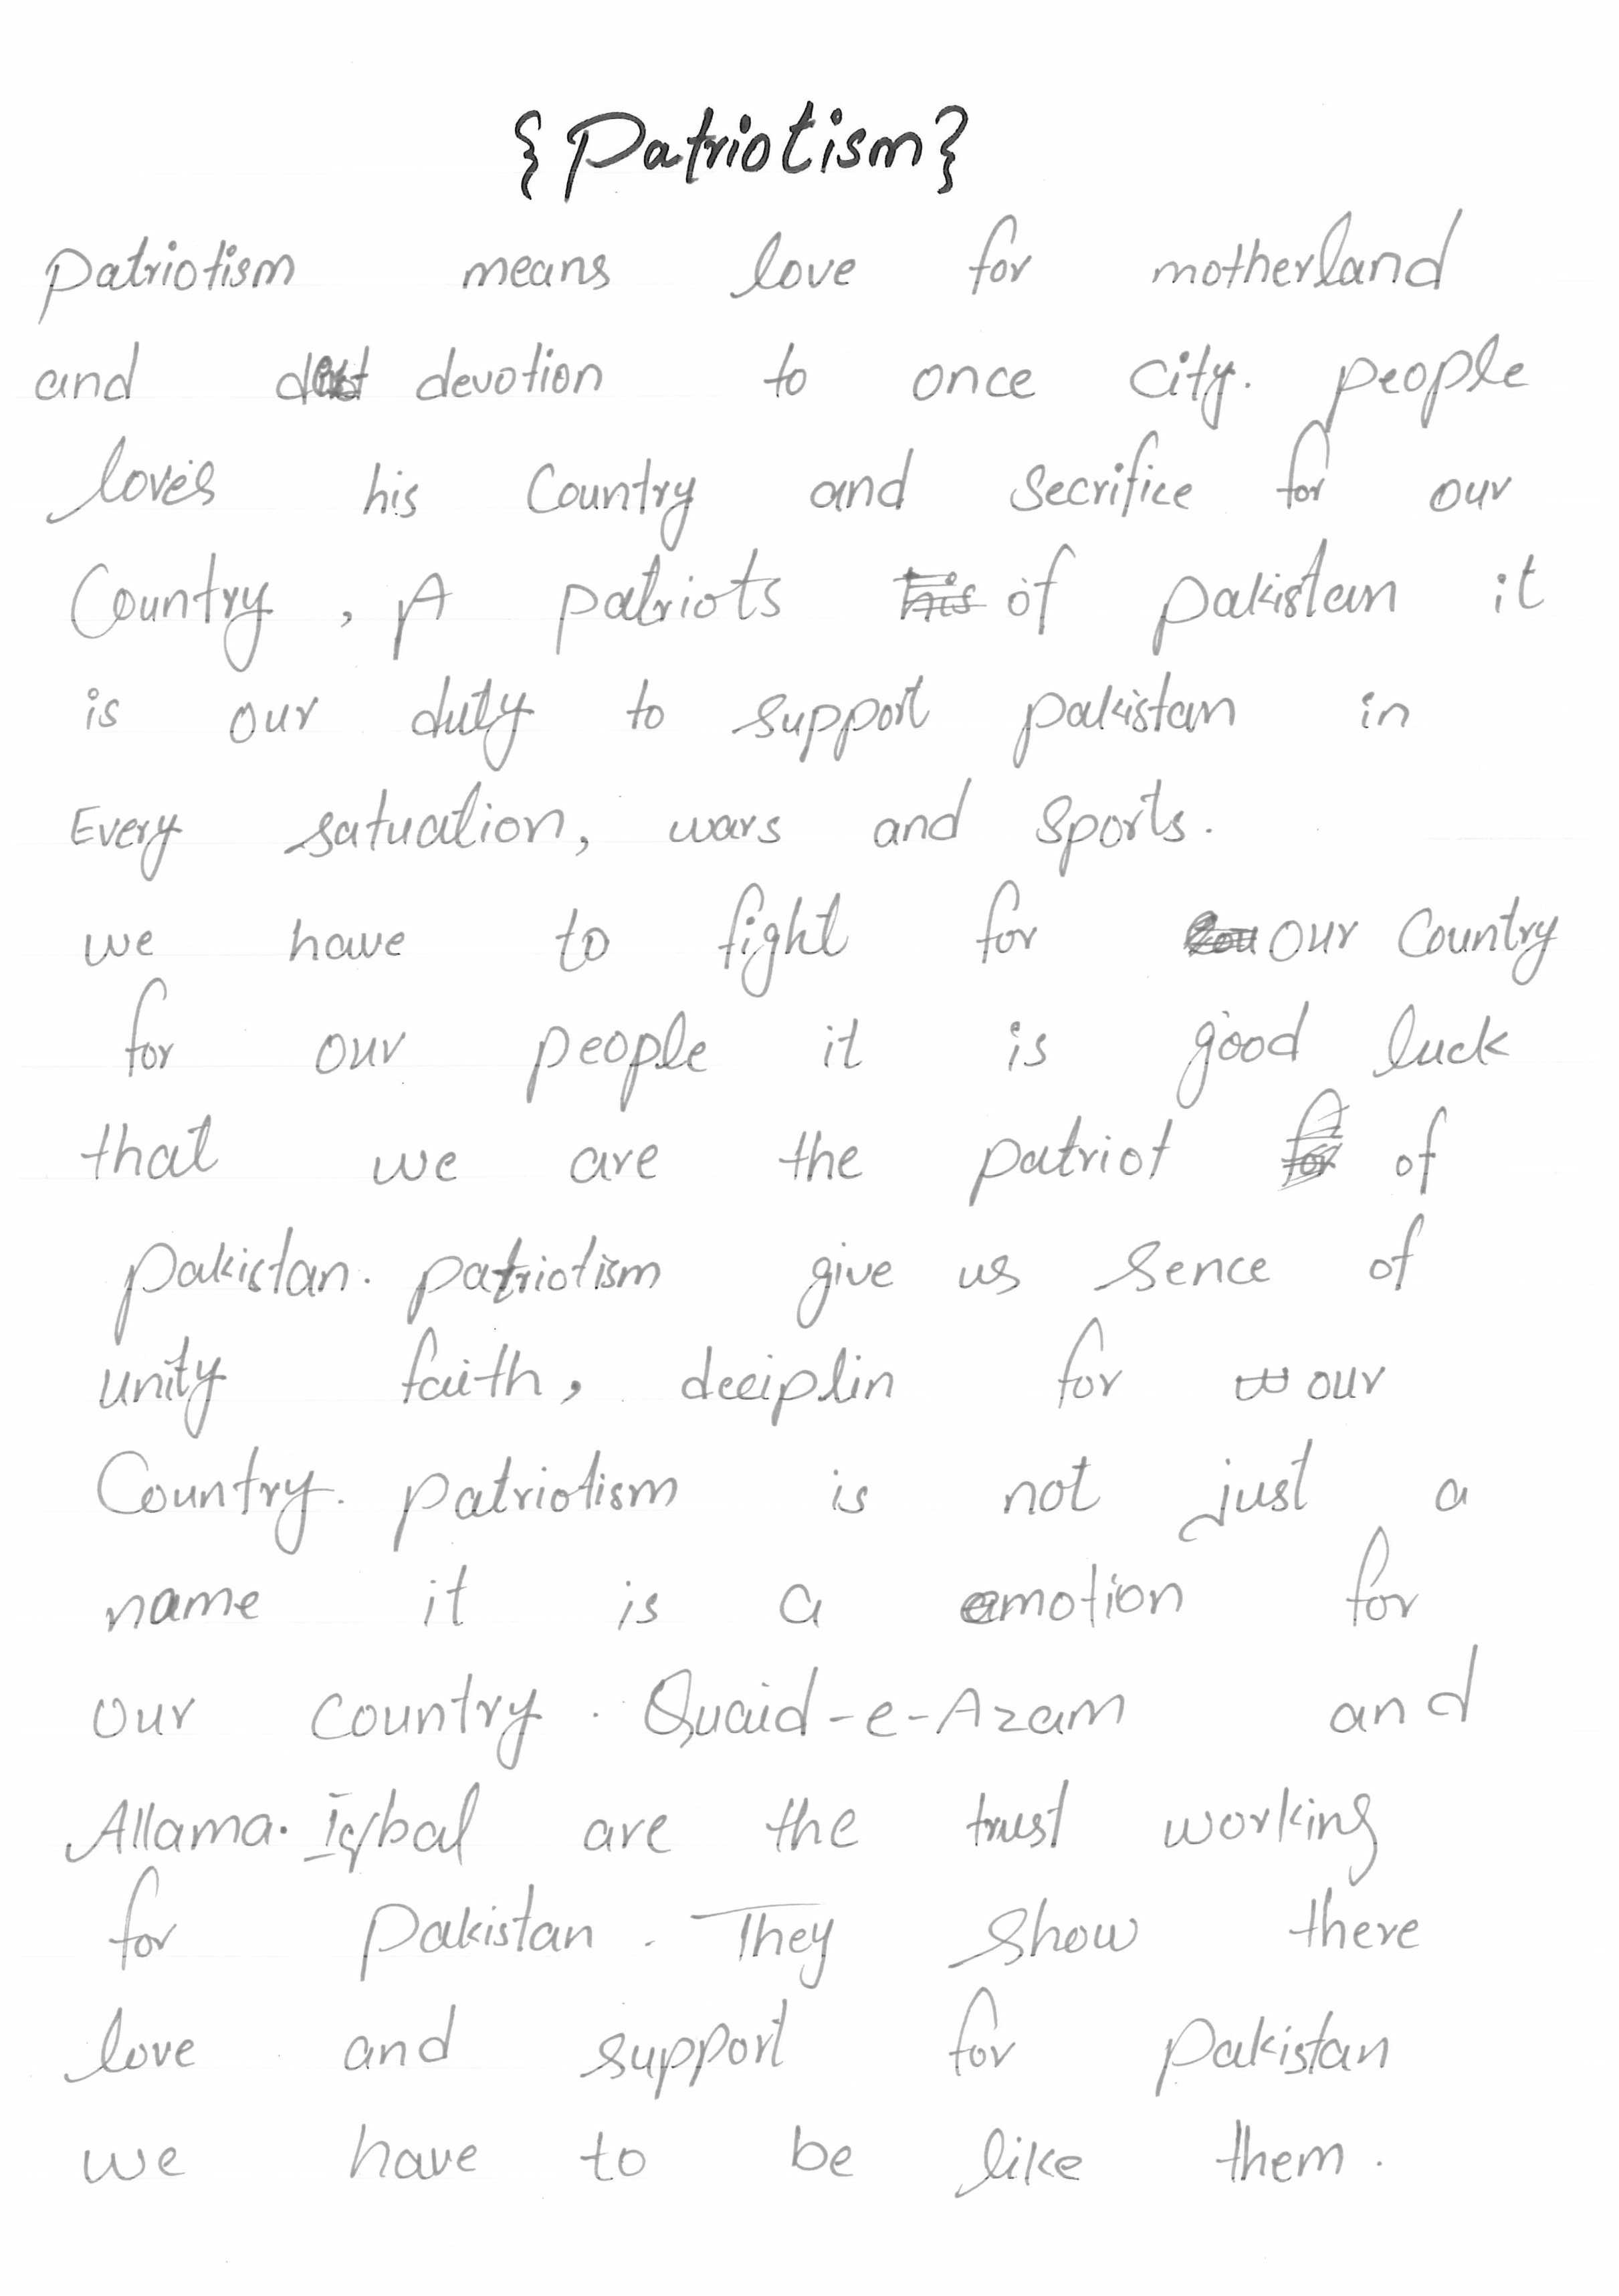 {Patriotism}
Patriotism means love for motherland
and devotion to once city. people
loves his Country and Secrifice for our
Country, A patriots of pakistan it
is our duty to support pakistan in
Every satuation, wars and sports.
we have to fight for our Country
for our people it is good luck
that we are the patriot of
pakistan. patriotism give us sence of
unity faith, deciplin for our
Country. patriotism is not just a
name it is a emotion for
our country. Quaid-e-Azam and
Allama. Iqbal are the trust working
for Pakistan. They show there
love and support for Pakistan
we have to be like them.